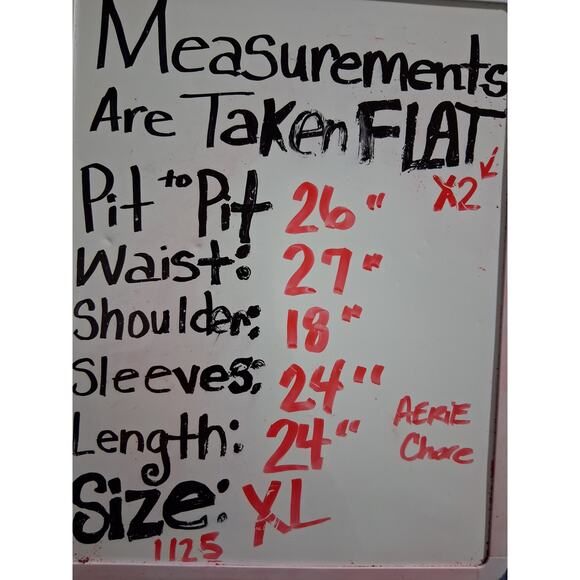 Measurements
Are Taken FLAT
X2
Pit to Pit 26"
Waist: 27"
Shoulder: 18"
Sleeves: 24"
Length: 24"
AERIE
Chore
Size: XL
1125